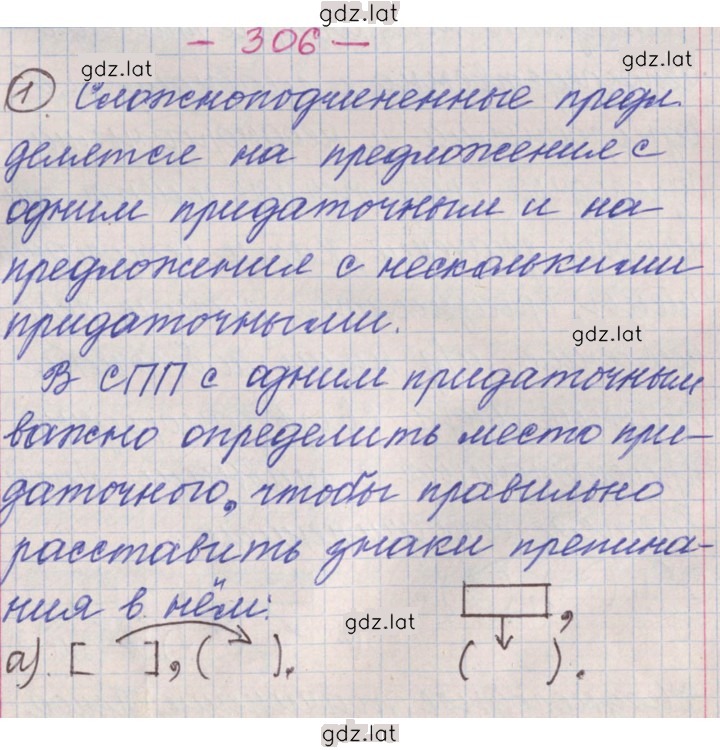 gdz.lat
- 306 -
gdz.lat
gdz.lat
1 Сложноподчиненные предл.
делятся на предложения с
одним придаточным и на
предложения с несколькими
придаточными.
gdz.lat
В СПП с одним придаточным
важно определить место при-
даточного, чтобы правильно
расставить знаки препина-
ния в нём:
gdz.lat
а). [ ], ( ). [ ], ( ).
gdz.lat